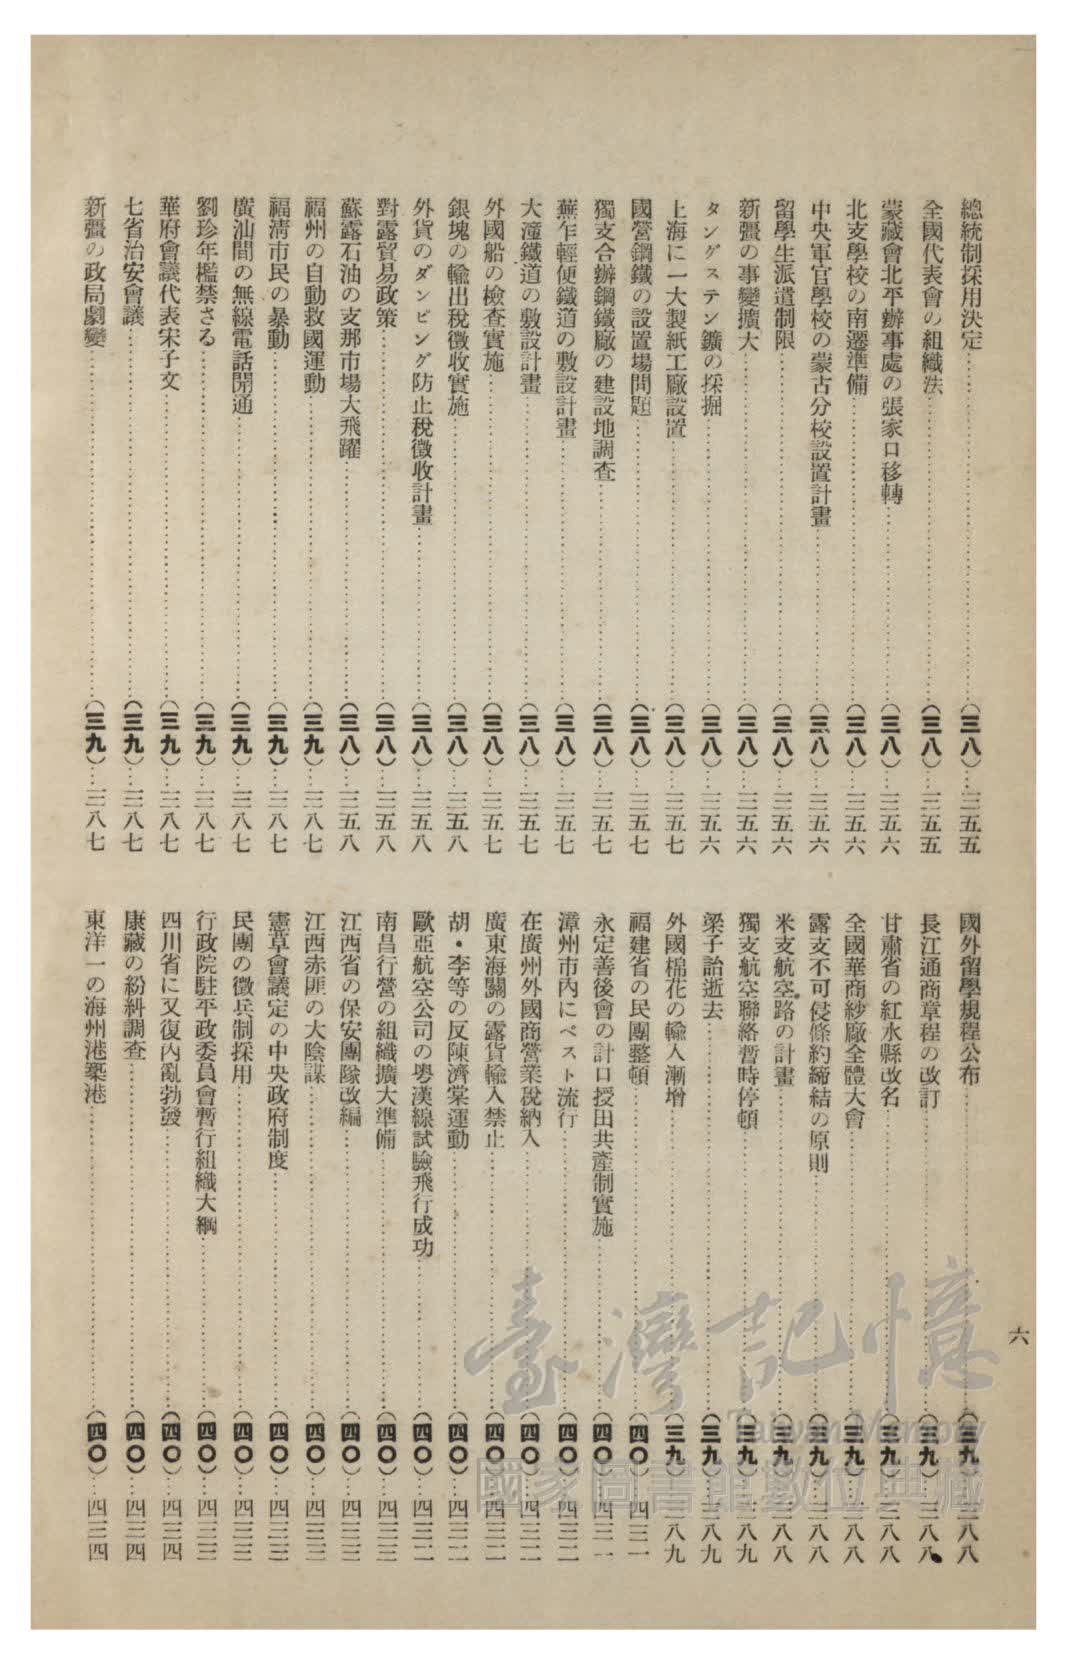 六
總統制採用決定…(三八)…三五五
全國代表會の組織法…(三八)…三五五
蒙藏會北平辦事處の張家口移轉…(三八)…三五六
北支學校の南遷準備…(三八)…三五六
中央軍官學校の蒙古分校設置計畫…(三八)…三五六
留學生派遣制限…(三八)…三五六
新疆の事變擴大…(三八)…三五六
タングステン鑛の採掘…(三八)…三五六
上海に一大製紙工廠設置…(三八)…三五七
國營鋼鐵の設置場問題…(三八)…三五七
獨支合辦鋼鐵廠の建設地調查…(三八)…三五七
蕪乍輕便鐵道の敷設計畫…(三八)…三五七
大潼鐵道の敷設計畫…(三八)…三五七
外國船の檢查實施…(三八)…三五七
銀塊の輸出稅徵收實施…(三八)…三五八
外貨のダンピング防止稅徵收計畫…(三八)…三五八
對露貿易政策…(三八)…三五八
蘇露石油の支那市場大飛躍…(三八)…三五八
福州の自動救國運動…(三九)…三八七
福淸市民の暴動…(三九)…三八七
廣汕間の無線電話開通…(三九)…三八七
劉珍年檻禁さる…(三九)…三八七
華府會議代表宋子文…(三九)…三八七
七省治安會議…(三九)…三八七
新疆の政局劇變…(三九)…三八七
國外留學規程公布…(三九)…三八八
長江通商章程の改訂…(三九)…三八八
甘肅省の紅水縣改名…(三九)…三八八
全國華商紗廠全體大會…(三九)…三八八
露支不可侵條約締結の原則…(三九)…三八八
米支航空路の計畫…(三九)…三八八
獨支航空聯絡暫時停頓…(三九)…三八九
梁子詒逝去…(三九)…三八九
外國棉花の輸入漸增…(三九)…三八九
福建省の民團整頓…(四〇)…四三一
永定善後會の計口授田共產制實施…(四〇)…四三一
漳州市內にペスト流行…(四〇)…四三二
在廣州外國商營業稅納入…(四〇)…四三二
廣東海關の露貨輸入禁止…(四〇)…四三二
胡・李等の反陳濟棠運動…(四〇)…四三二
歐亞航空公司の粵漢線試驗飛行成功…(四〇)…四三二
南昌行營の組織擴大準備…(四〇)…四三三
江西省の保安團隊改編…(四〇)…四三三
江西赤匪の大陰謀…(四〇)…四三三
憲草會議定の中央政府制度…(四〇)…四三三
民團の徵兵制採用…(四〇)…四三三
行政院駐平政委員會暫行組織大綱…(四〇)…四三三
四川省に又復內亂勃發…(四〇)…四三四
康藏の紛糾調查…(四〇)…四三四
東洋一の海州港築港…(四〇)…四三四
臺灣記憶
Taiwan Memory
國家圖書館數位典藏